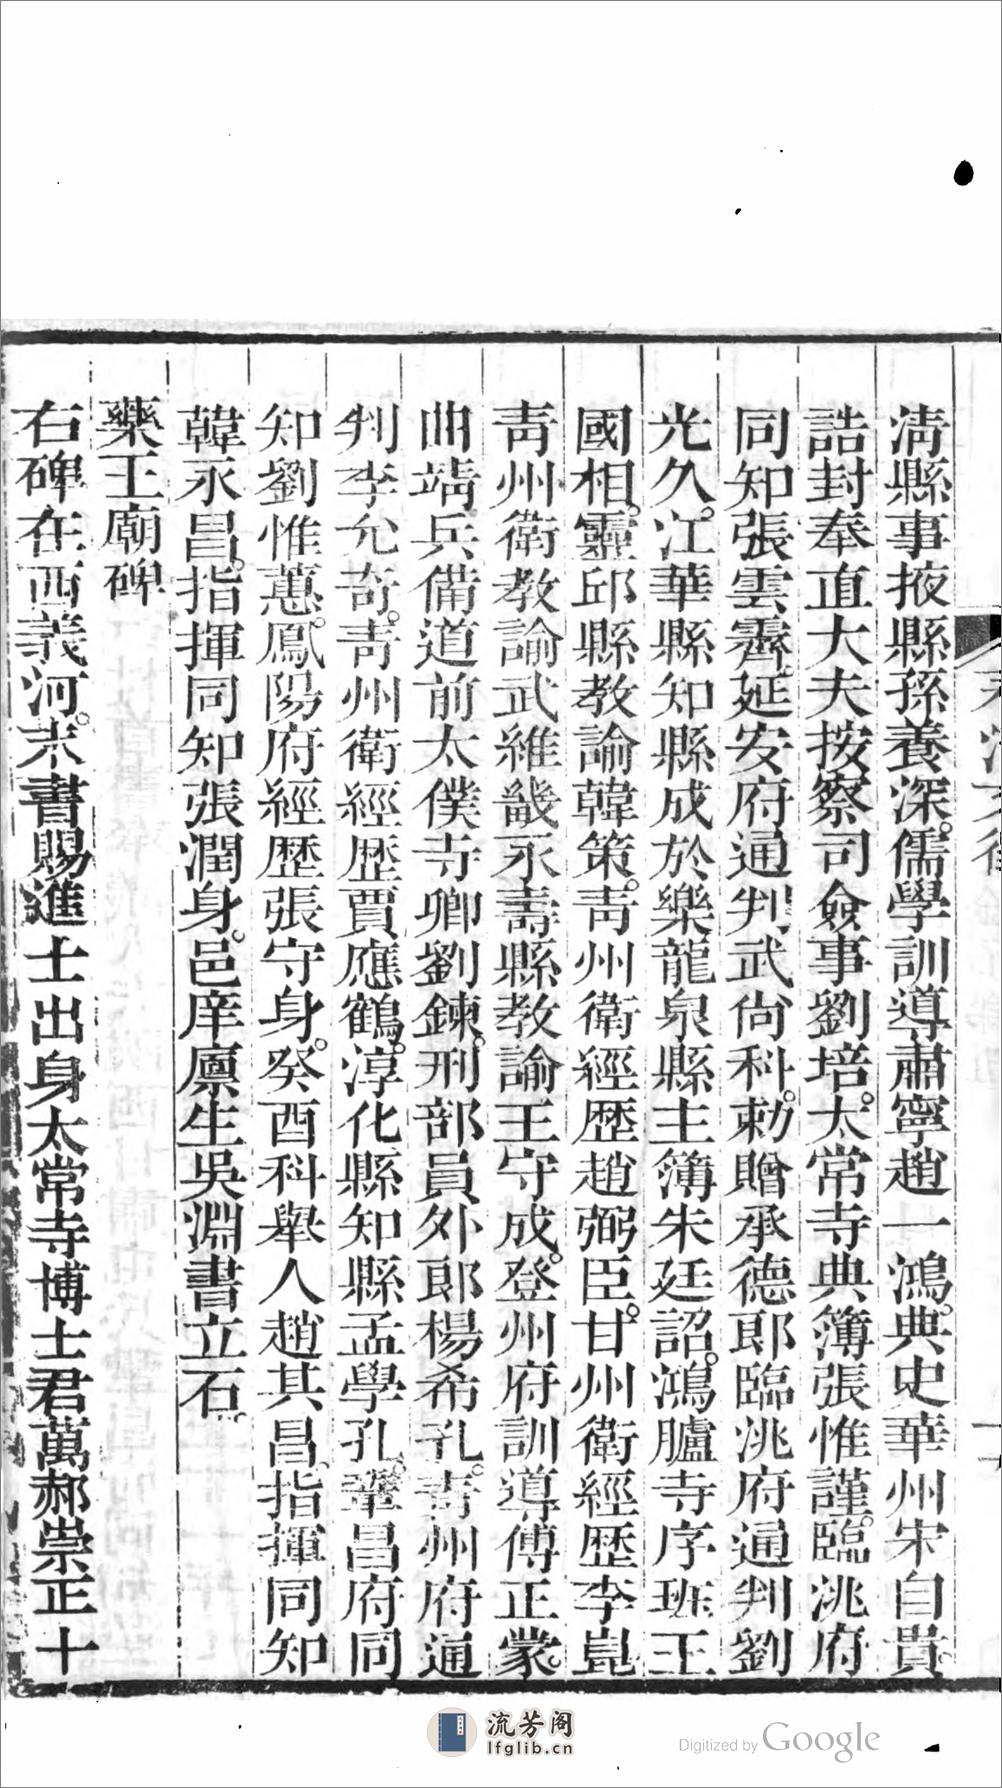 清縣事掖縣孫養深。儒學訓導肅寧趙一鴻。典史華州宋自貴。
誥封奉直大夫按察司僉事劉培。太常寺典簿張惟謹。臨洮府
同知張雲霽。延安府通判武尚科。勅贈承德郎臨洮府通判劉
光久。江華縣知縣成於樂。龍泉縣主簿朱廷詔。鴻臚寺序班王
國相。靈邱縣教諭韓策。靑州衛經歷趙弼臣。甘州衛經歷李崑
靑州衛教諭武維畿。永壽縣教諭王守成。登州府訓導傅正蒙。
曲靖兵備道前太僕寺卿劉鍊。刑部員外郎楊希孔。靑州府通
判李允奇。靑州衛經歷賈應鶴。淳化縣知縣孟學孔。鞏昌府同
知劉惟蕙。鳳陽府經歷張守身。癸酉科舉人趙其昌。指揮同知
韓永昌。指揮同知張潤身。邑庠廩生吳淵書立石。
藥王廟碑
右碑在西義河。末書賜進士出身太常寺博士君萬郝崇正十
流芳阁
lfglib.cn
Digitized by Google